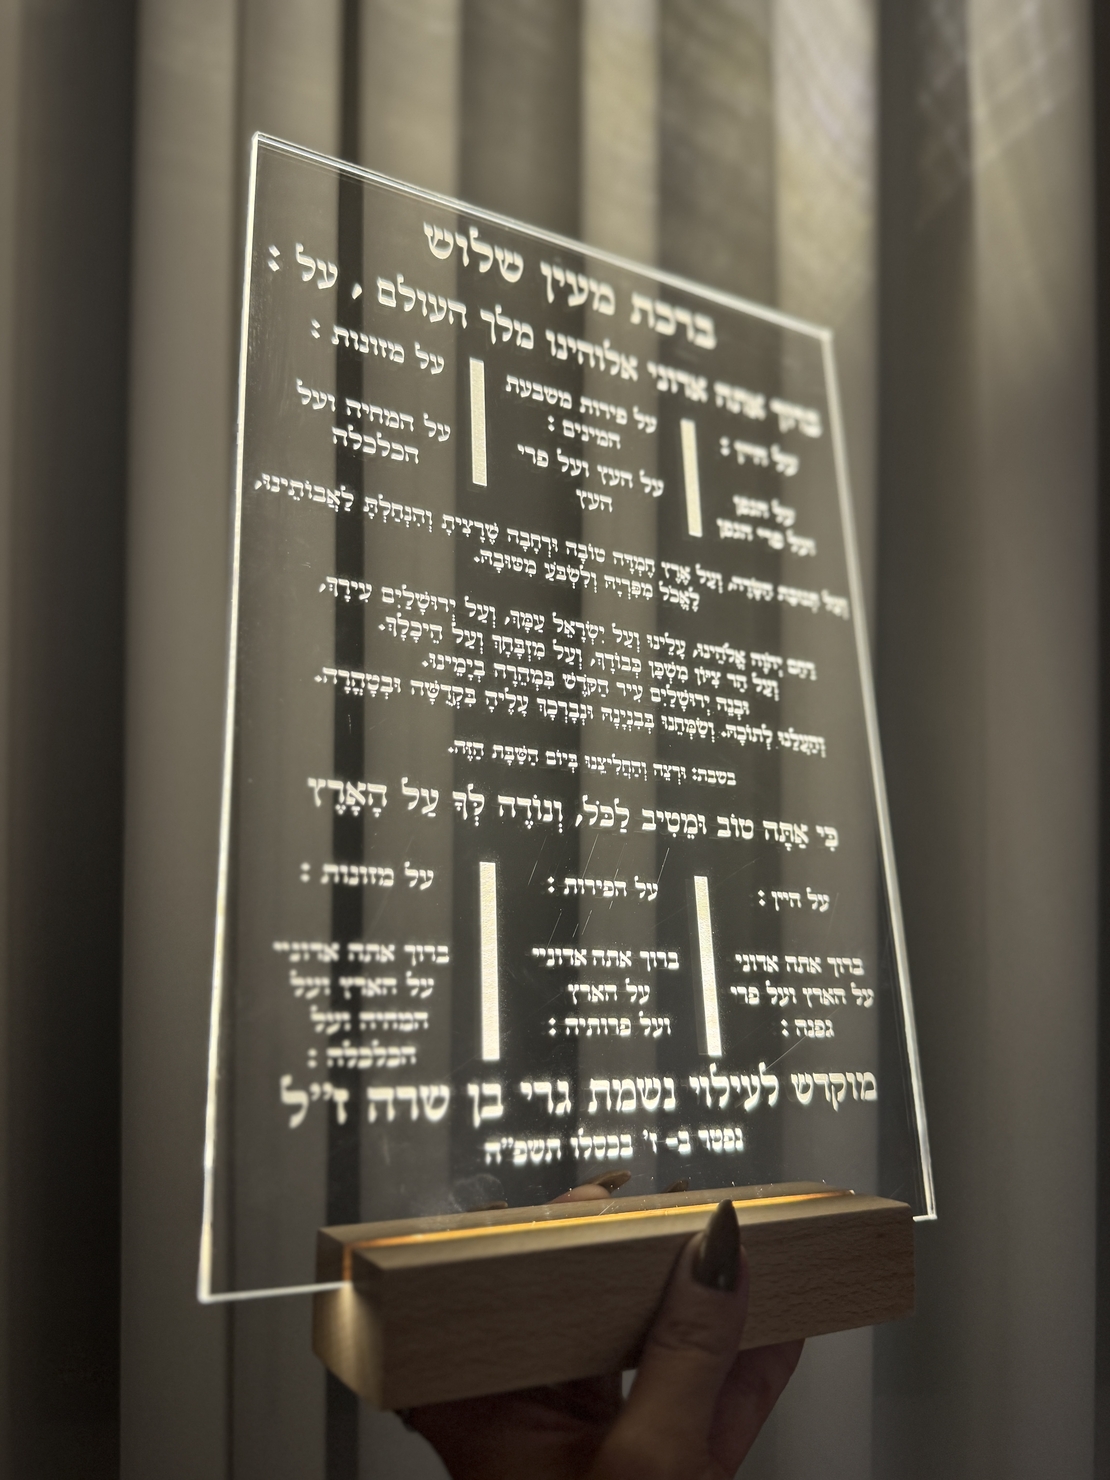 ברכת מעין שלוש
ברוך אתה אדוני אלוהינו מלך העולם , על :
על היין :
על הגפן
ועל פרי הגפן
על פירות משבעת
המינים :
על העץ ועל פרי
העץ
על מזונות :
על המחיה ועל
הכלכלה
וְעַל תְּנוּבַת הַשָּׂדֶה, וְעַל אֶרֶץ חֶמְדָּה טוֹבָה וּרְחָבָה שֶׁרָצִיתָ וְהִנְחַלְתָּ לַאֲבוֹתֵינוּ,
לֶאֱכֹל מִפִּרְיָהּ וְלִשְׂבֹּעַ מִטּוּבָהּ.
רַחֵם יְהֹוָה אֱלֹהֵינוּ, עָלֵינוּ וְעַל יִשְׂרָאֵל עַמָּךְ, וְעַל יְרוּשָׁלַיִם עִירָךְ,
וְעַל הַר צִיּוֹן מִשְׁכַּן כְּבוֹדָךְ, וְעַל מִזְבָּחָךְ וְעַל הֵיכָלָךְ.
וּבְנֵה יְרוּשָׁלַיִם עִיר הַקֹּדֶשׁ בִּמְהֵרָה בְיָמֵינוּ.
וְהַעֲלֵנוּ לְתוֹכָהּ. וְשַׂמְּחֵנוּ בְּבִנְיָנָהּ וּנְבָרְכָךְ עָלֶיהָ בִּקְדֻשָּׁה וּבְטָהֳרָה.
בשבת: וּרְצֵה וְהַחֲלִיצֵנוּ בְּיוֹם הַשַּׁבָּת הַזֶּה.
כִּי אַתָּה טוֹב וּמֵטִיב לַכֹּל, וְנוֹדֶה לְּךָ עַל הָאָרֶץ
על היין :
ברוך אתה אדוני
על הארץ ועל פרי
גפנה :
על הפירות :
ברוך אתה אדוניי
על הארץ
ועל פרותיה :
על מזונות :
ברוך אתה אדוניי
על הארץ ועל
המחיה ועל
הכלכלה :
מוקדש לעילוי נשמת גדי בן שרה ז״ל
נפטר ב- ז׳ בכסלו תשפ״ה